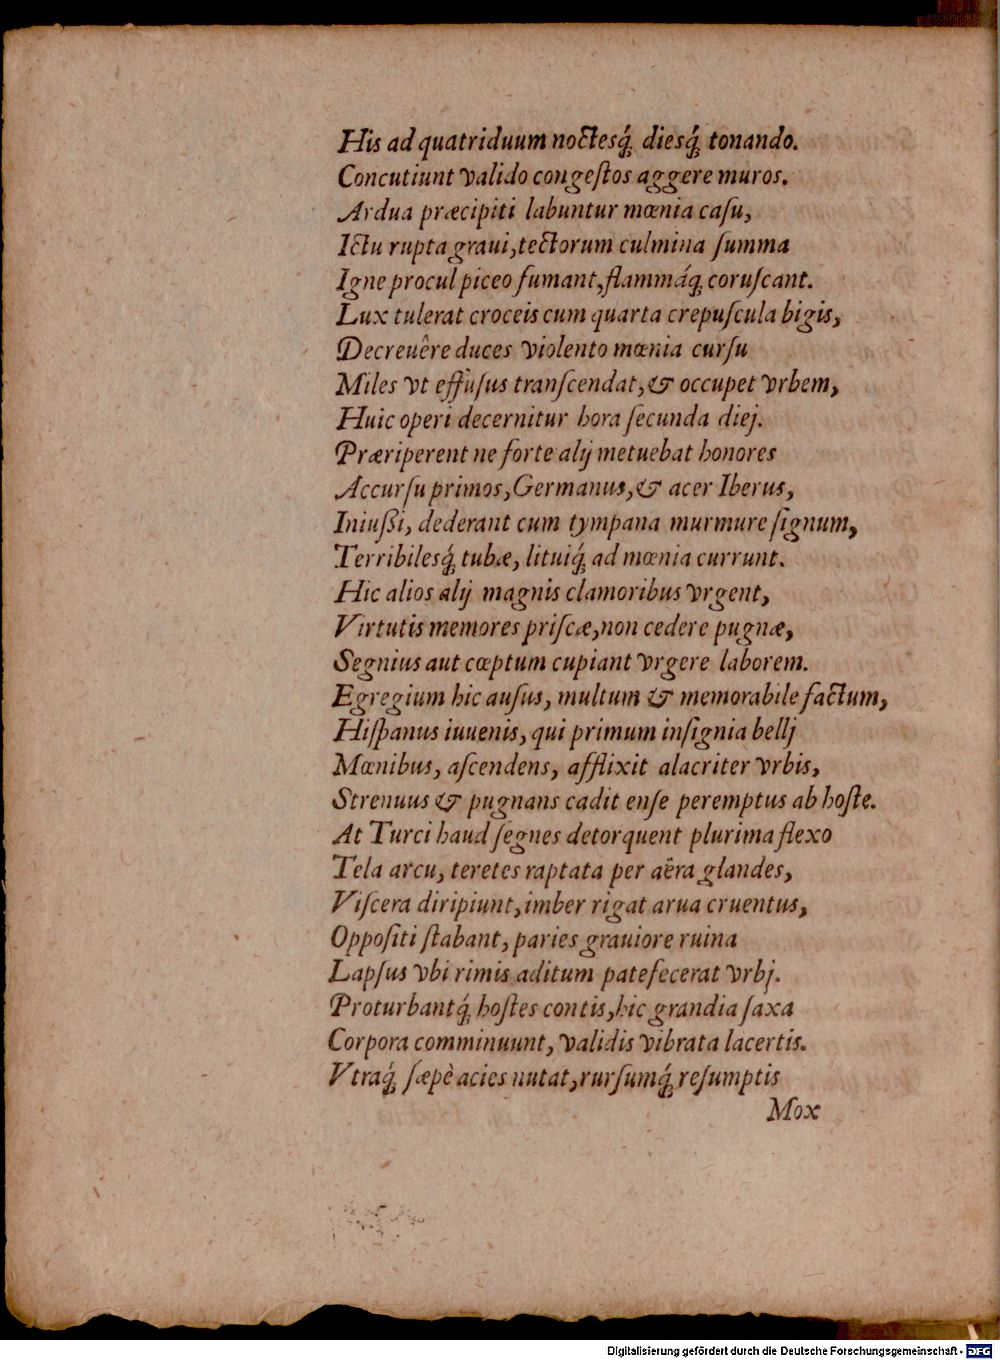 His ad quatriduum noctesq́; diesq́; tonando.
Concutiunt valido congeſtos aggere muros.
Ardua præcipiti labuntur mœnia caſu,
Ictu rupta graui, tectorum culmina ſumma
Igne procul piceo fumant, flammáq; coruſcant.
Lux tulerat croceis cum quarta crepuſcula bigis,
Decreuêre duces violento mœnia curſu
Miles vt effuſus tranſcendat, & occupet vrbem,
Huic operi decernitur hora ſecunda diej.
Præriperent ne forte alij metuebat honores
Accurſu primos, Germanus, & acer Iberus,
Iniuſſi, dederant cum tympana murmure ſignum,
Terribilesq́; tubæ, lituiq́; ad mœnia currunt.
Hic alios alij magnis clamoribus vrgent,
Virtutis memores priſcæ, non cedere pugnæ,
Segnius aut cœptum cupiant vrgere laborem.
Egregium hic auſus, multum & memorabile factum,
Hiſpanus iuuenis, qui primum inſignia bellj
Mœnibus, aſcendens, afflixit alacriter vrbis,
Strenuus & pugnans cadit enſe peremptus ab hoſte.
At Turci haud ſegnes detorquent plurima flexo
Tela arcu, teretes raptata per aëra glandes,
Viſcera diripiunt, imber rigat arua cruentus,
Oppoſiti ſtabant, paries grauiore ruina
Lapſus vbi rimis aditum patefecerat vrbj.
Proturbantq́; hoſtes contis, hic grandia ſaxa
Corpora comminuunt, validis vibrata lacertis.
Vtraq́; ſæpè acies nutat, rurſumq́; reſumptis
Mox
Digitalisierung gefördert durch die Deutsche Forschungsgemeinschaft - DFG